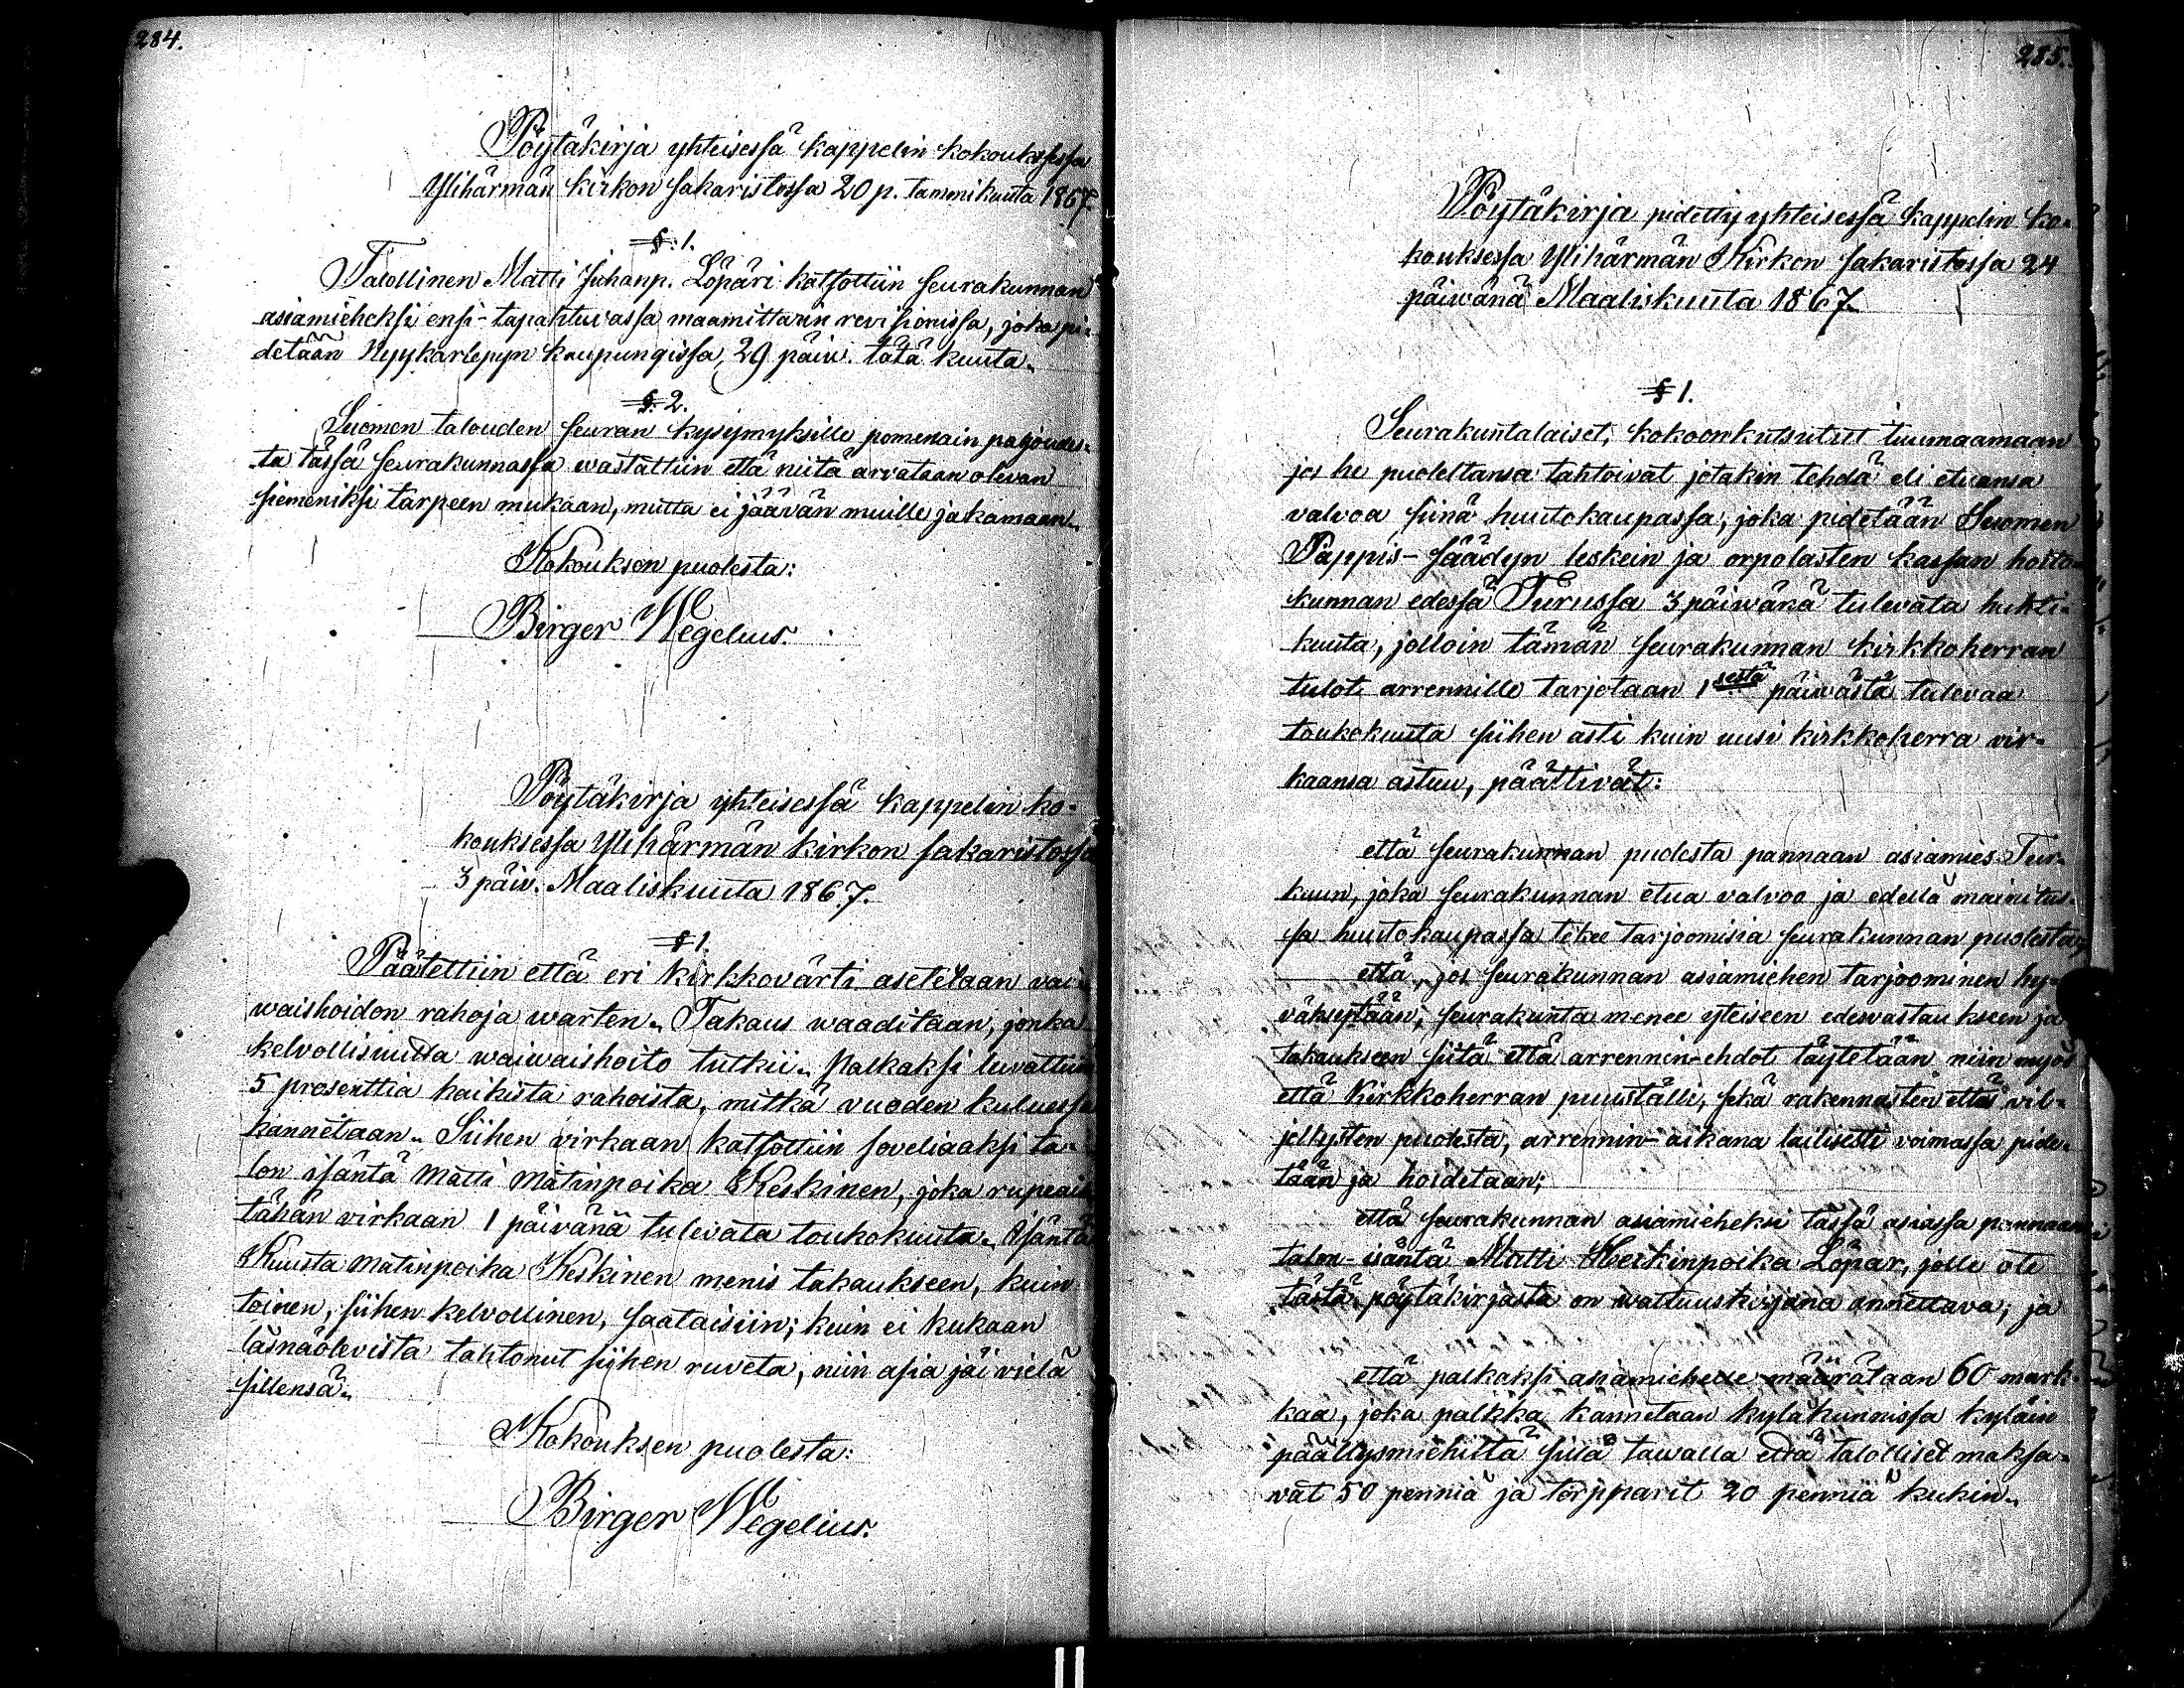 284.
Pöytäkirja yhteisessä kappelin kokouksessa
Ylihärmän kirkon sakaristossa 20 p. tammikuuta 1867.
§. 1.
Talollinen Matti Juhanp. Löpäri katsottiin seurakunnan
asiamieheksi ensi-tapahtuvassa maamittarin revisionissa, joka pi-
detään Nyykarlepyyn kaupungissa, 29 päiv. tätä kuuta.
§. 2.
Suomen talouden seuran kysymyksille pomenain paljoudes-
ta tässä seurakunnassa wastattiin että niitä arvataan olevan
siemeniksi tarpeen mukaan, mutta ei jäävän muille jakamaan.
Kokouksen puolesta:
Birger Wegelius.
Pöytäkirja yhteisessä kappelin ko-
kouksessa Ylihärmän kirkon sakaristossa
3 päiv. Maaliskuuta 1867.
§ 1.
Päätettiin että eri kirkkovärti asetetaan vai-
waishoidon rahoja warten. Takaus waaditaan, jonka
kelvollisuutta waiwaishoito tutkii. Palkaksi luvattiin
5 prosenttia kaikista rahoista, mitkä vuoden kuluessa
kannetaan. Siihen virkaan katsottiin soveliaaksi ta-
lon isäntä Matti Matinpoika Keskinen, joka rupeaa
tähän virkaan 1 päivänä tulevata toukokuuta. Isäntä
Kuusta Matinpoika Keskinen menis takaukseen, kuin
toinen, siihen kelvollinen, saataisiin; kuin ei kukaan
läsnäolevista tahtonut siihen ruveta, niin asia jäi vielä
sillensä.
Kokouksen puolesta:
Birger Wegelius.
285.
Pöytäkirja pidetty yhteisessä kappelin ko-
kouksessa Ylihärmän Kirkon sakaristossa 24
päiwänä Maaliskuuta 1867.
§ 1.
Seurakuntalaiset, kokoonkutsutut tuumaamaan
jos he puoleltansa tahtoivat jotakin tehdä eli etuansa
valvoa siinä huutokaupassa, joka pidetään Suomen
Pappis-säädyn leskein ja orpolasten kassan hoito-
kunnan edessä Turussa 3 päiwänä tulevata huhti-
kuuta, jolloin tämän seurakunnan kirkkoherran
tulot arrennille tarjotaan 1sestä päiwästä tulevaa
toukokuuta siihen asti kuin uusi kirkkoherra vir-
kaansa astuu, päättivät:
että seurakunnan puolesta pannaan asiamies Tur-
kuun, joka seurakunnan etua valvoo ja edellä mainitus-
sa huutokaupassa tekee tarjoomisia seurakunnan puolesta,
että, jos seurakunnan asiamiehen tarjoominen hy-
väksytään, seurakunta menee yteiseen edeswastaukseen ja
takaukseen siitä että arrennin-ehdot täytetään niin myös
että Kirkkoherran puuställi, sekä rakennusten että vil-
jellysten puolesta, arrennin-aikana laillisesti voimassa pide-
tään ja hoidetaan;
että seurakunnan asiamieheksi tässä asiassa pannaan
talon-isäntä Matti Heikinpoika Löpar, jolle ote
tästä pöytäkirjasta on waltuuskirjana annettava; ja
että palkaksi asiamiehelle määrätaan 60 mark-
kaa, joka palkka kannetaan kyläkunnissa kyläin
päällysmiehiltä sillä tawalla että talolliset maksa-
wat 50 penniä ja torpparit 20 penniä kukin.